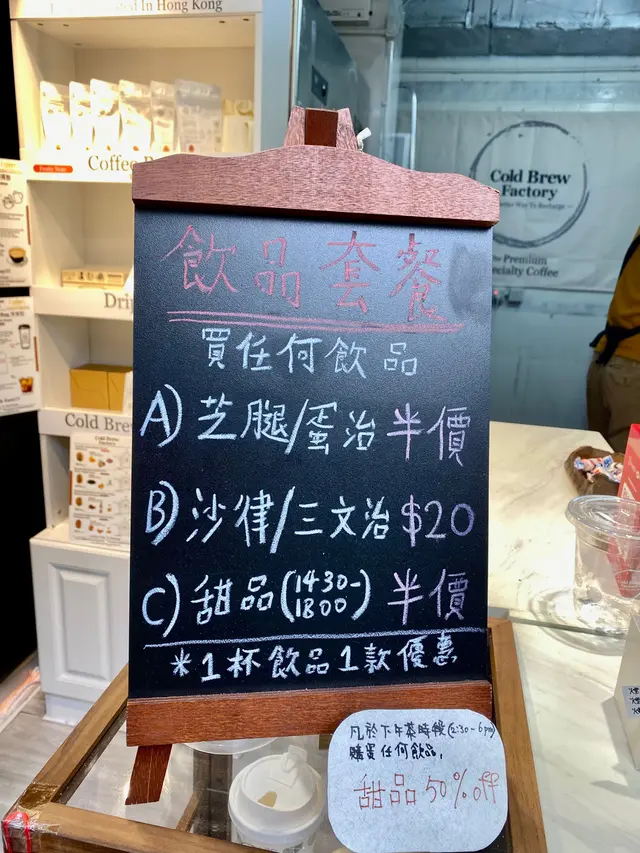 ted In Hong Kong
Coffee
Cold Brew
Factory
Way To Recharge
Premium
Specialty Coffee
Drip
Cold Bre
Cold Brew
Factory
飲品套餐
買任何飲品
A) 芝腿/蛋治 半價
B) 沙律/三文治 $20
C) 甜品(1430-1800) 半價
*1杯飲品1款優惠
凡於下午茶時段(2:30-6pm)
購買任何飲品,
甜品 50% off